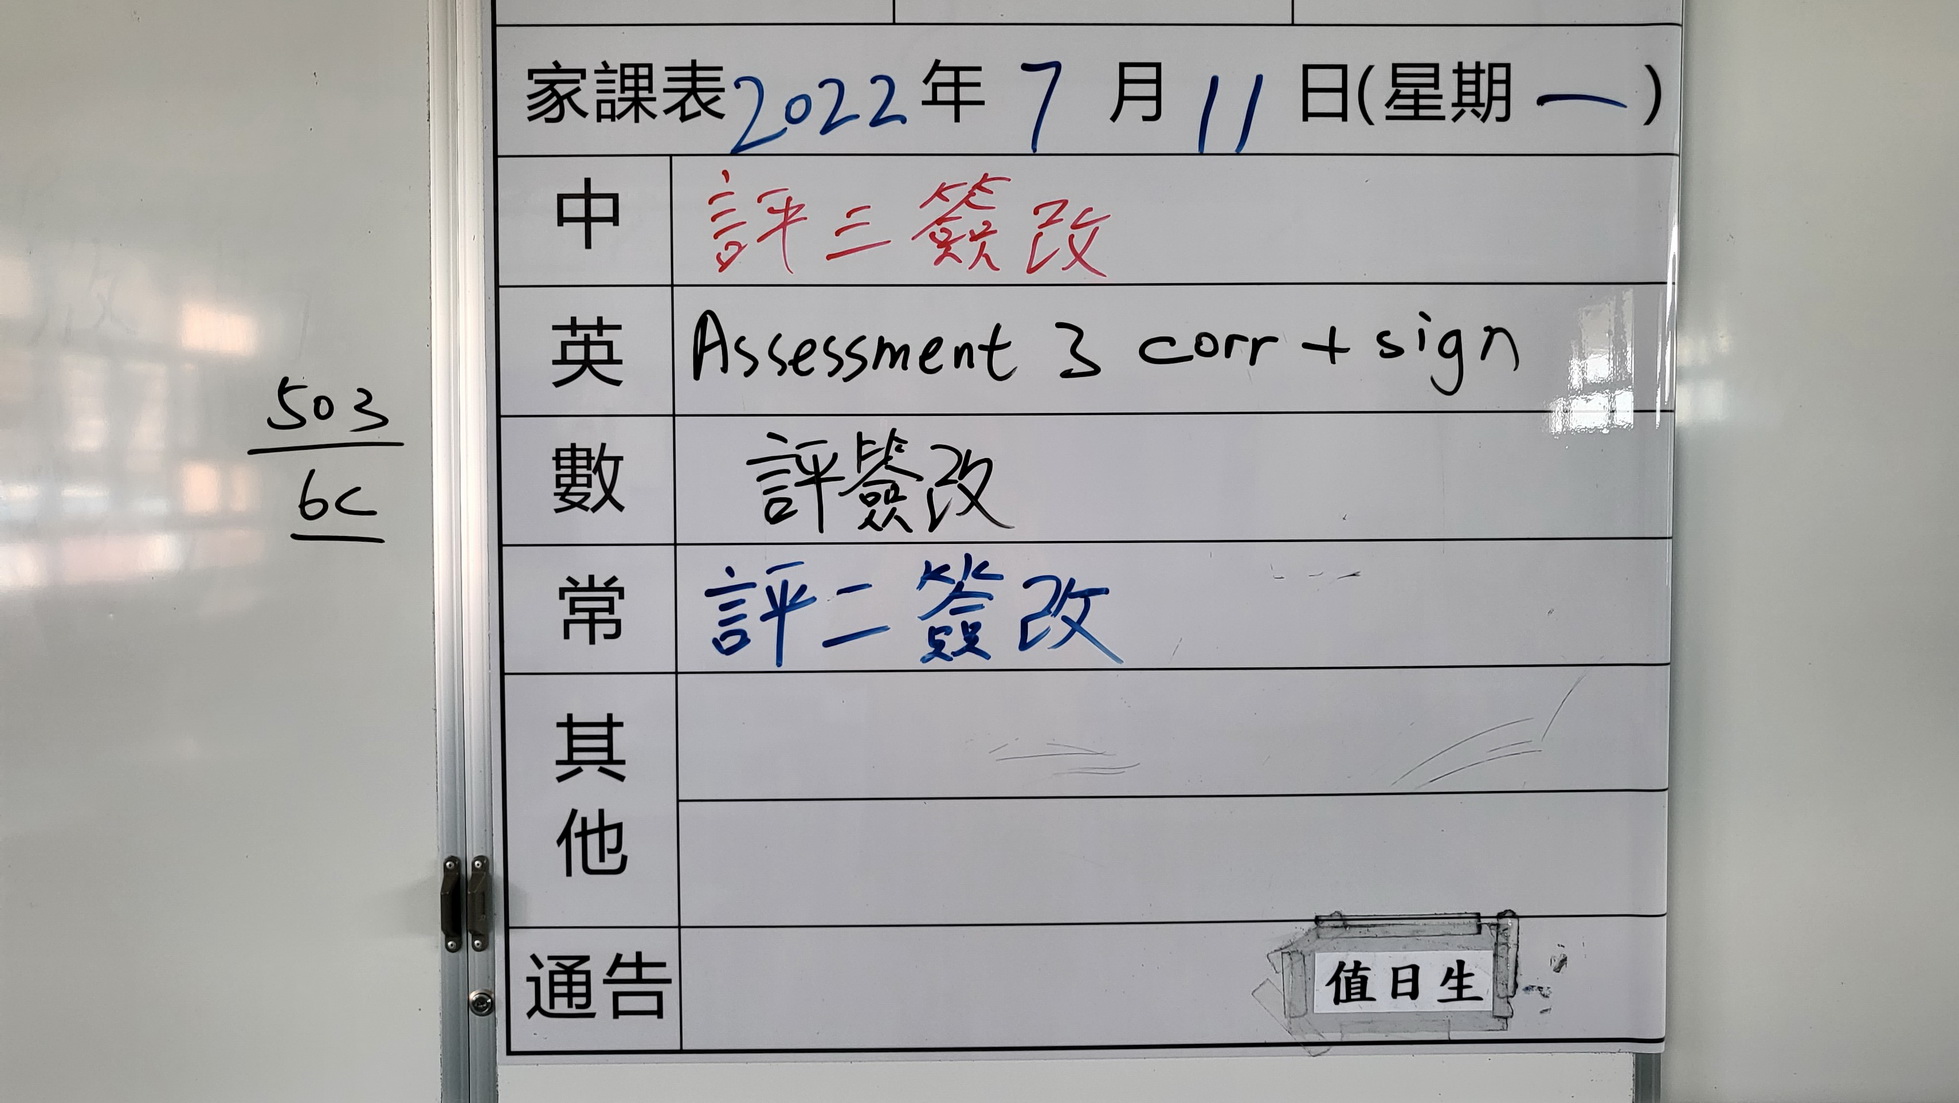 家課表2022年7月11日(星期一)
中 評三簽改
英 Assessment 3 corr + sign
數 評簽改
常 評二簽改
其他
通告
值日生
503
6C